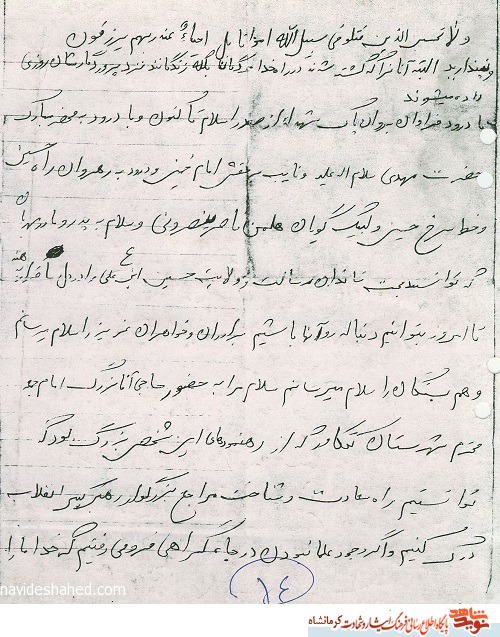 ولا تحسبن الذین قتلوا فی سبیل الله امواتا بل احیاءٌ عند ربهم یرزقون
مپندارید البته آنان را که کشته شدند در راه خدا مردگانند بلکه زندگانند نزد پروردگارشان روزی
داده میشوند
با درود فراوان بروان پاک شهدا از صدر اسلام تا کنون و با درود به محضر مبارک
حضرت مهدی سلام اله علیه و نایب بر حقش امام خمینی و درود به رهروان راه حسین
و خط سرخ حسینی و لبیک گویان هل من ناصر ینصرونی و سلام به پدر و مادرم
که توانستند محبت خاندان رسالت و ولایت حسین ابن علی ع را در دل ما
تا امروز بتوانیم دنباله رو آنها باشیم برادران و خواهران عزیز را سلام میرسانم
و هم بستگان را سلام میرسانم سلام مرا به حضور حاجی آقا بزرگ امام جمعه
محترم شهرستان کنگاور که از رهنمودهای این شخص بزرگ بود که
توانستیم راه سعادت و شناخت مراجع بزرگوار رهبر کبیر انقلاب
درک کنیم و اگر وجود علما نبودن در چاه گمراهی فرو می رفتیم که خدا ما را
۱۴
navideshahed.com
نوید شاهد
پایگاه اطلاع رسانی فرهنگ ایثار و شهادت کرمانشاه